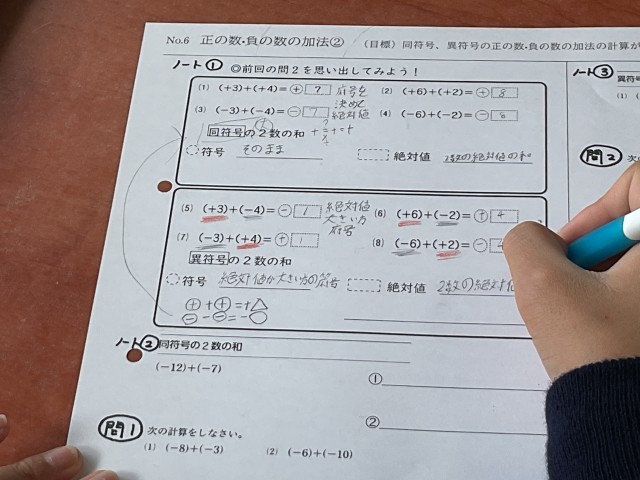 No.6 正の数・負の数の加法② (目標) 同符号、異符号の正の数・負の数の加法の計算が
ノート① ◎前回の問2を思い出してみよう！
(1) (+3)+(+4)=⊕ 7 符号を (2) (+6)+(+2)=⊕ 8
決めて
(3) (-3)+(-4)=⊖ 7 絶対値 (4) (-6)+(-2)=⊖ 8
同符号の2数の和
符号 そのまま 絶対値 2数の絶対値の和
(5) (+3)+(-4)=⊖ 1 絶対値 (6) (+6)+(-2)=⊕ 4
大きい方
符号
(7) (-3)+(+4)=⊕ 1 (8) (-6)+(+2)=⊖ 4
異符号の2数の和
符号 絶対値が大きい方の符号 絶対値 2数の絶対値
⊕+⊕=+△
⊖-⊖=-○
ノート② 同符号の2数の和
(-12)+(-7)
①
②
問1 次の計算をしなさい。
(1) (-8)+(-3) (2) (-6)+(-10)
ノート③
(1)
問2